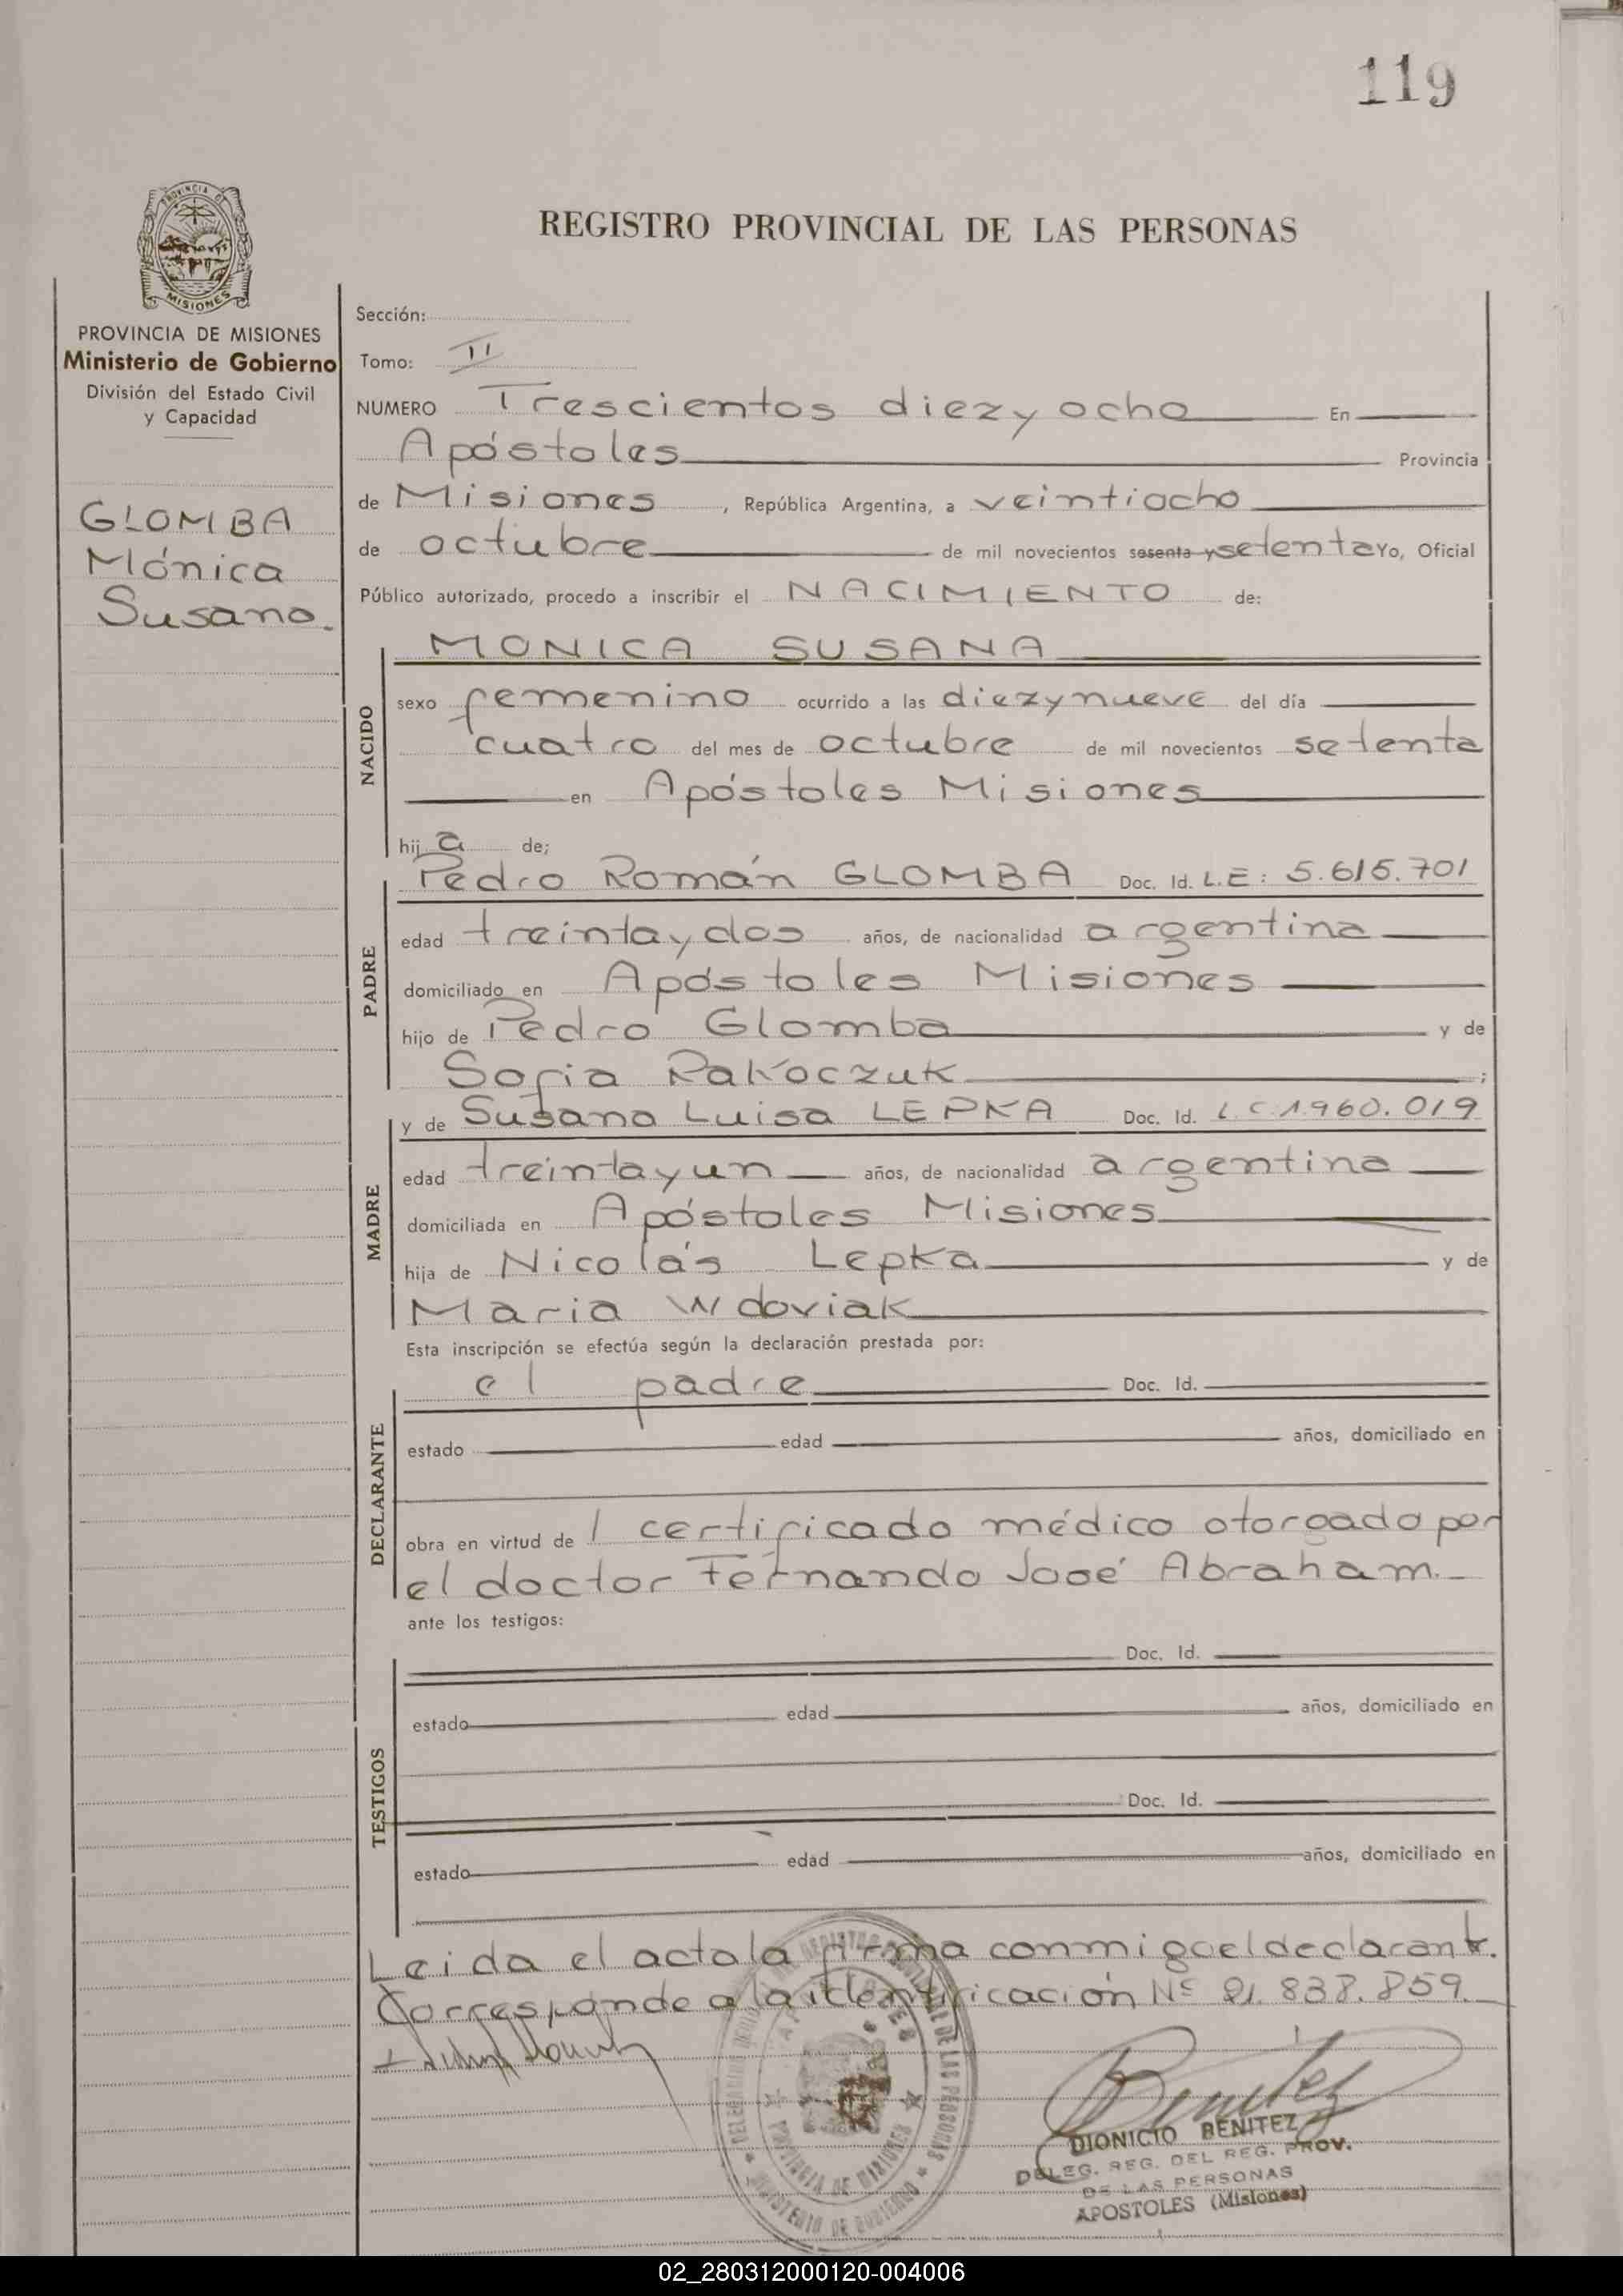 119
PROVINCIA DE
MISIONES
REGISTRO PROVINCIAL DE LAS PERSONAS
PROVINCIA DE MISIONES
Ministerio de Gobierno
División del Estado Civil
y Capacidad
GLOMBA
Mónica
Susana.
Sección:
Tomo: II
NUMERO Trescientos diezyocho En
Apóstoles Provincia
de Misiones, República Argentina, a veintiocho
de octubre de mil novecientos sesenta y setenta Yo, Oficial
Público autorizado, procedo a inscribir el NACIMIENTO de:
NACIDO
MONICA SUSANA
sexo femenino ocurrido a las diezynueve del día
cuatro del mes de octubre de mil novecientos setenta
en Apóstoles Misiones
hija de;
PADRE
Pedro Román GLOMBA Doc. Id. L.E: 5.615.701
edad treintaydos años, de nacionalidad argentina
domiciliado en Apóstoles Misiones
hijo de Pedro Glomba y de
Sofia Rakoczuk ;
MADRE
y de Susana Luisa LEPKA Doc. Id. L C.1.960.019
edad treintayun años, de nacionalidad argentina
domiciliada en Apóstoles Misiones
hija de Nicolás Lepka y de
Maria Wdoviak
Esta inscripción se efectúa según la declaración prestada por:
DECLARANTE
el padre Doc. Id.
estado edad años, domiciliado en
obra en virtud de 1 certificado médico otorgado por
el doctor Fernando José Abraham.
ante los testigos:
TESTIGOS
Doc. Id.
estado edad años, domiciliado en
Doc. Id.
estado edad años, domiciliado en
Leida el acta la firma conmigo el declarante.
Corresponde a la identificación Nº 21.838.859.
Benítez
DIONICIO BENITEZ
DELEG. REG. DEL REG. PROV.
DE LAS PERSONAS
APOSTOLES (Misiones)
PROVINCIA DE MISIONES
MINISTERIO DE GOBIERNO
02_280312000120-004006